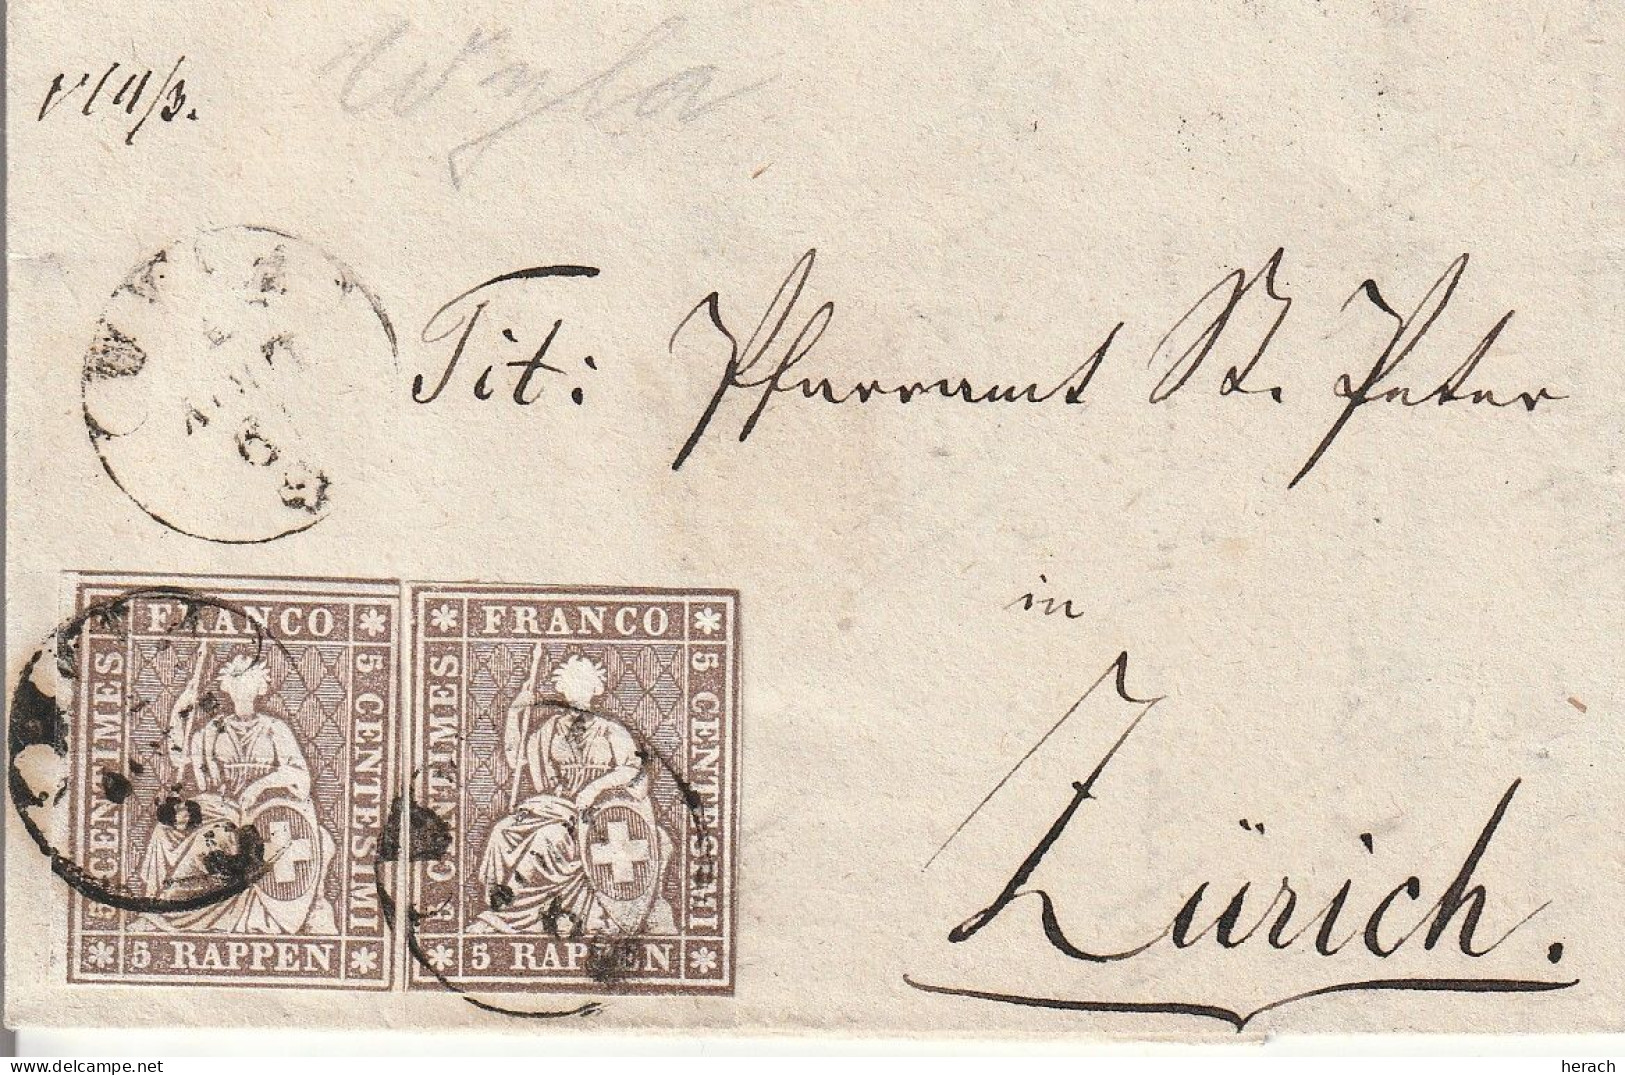 Wyla
Tit: Pfarramt St. Peter
in
Zürich.
FRANCO
5 CENTIMES
5 CENTESIMI
5 RAPPEN
FRANCO
5 CENTIMES
5 CENTESIMI
5 RAPPEN
herach